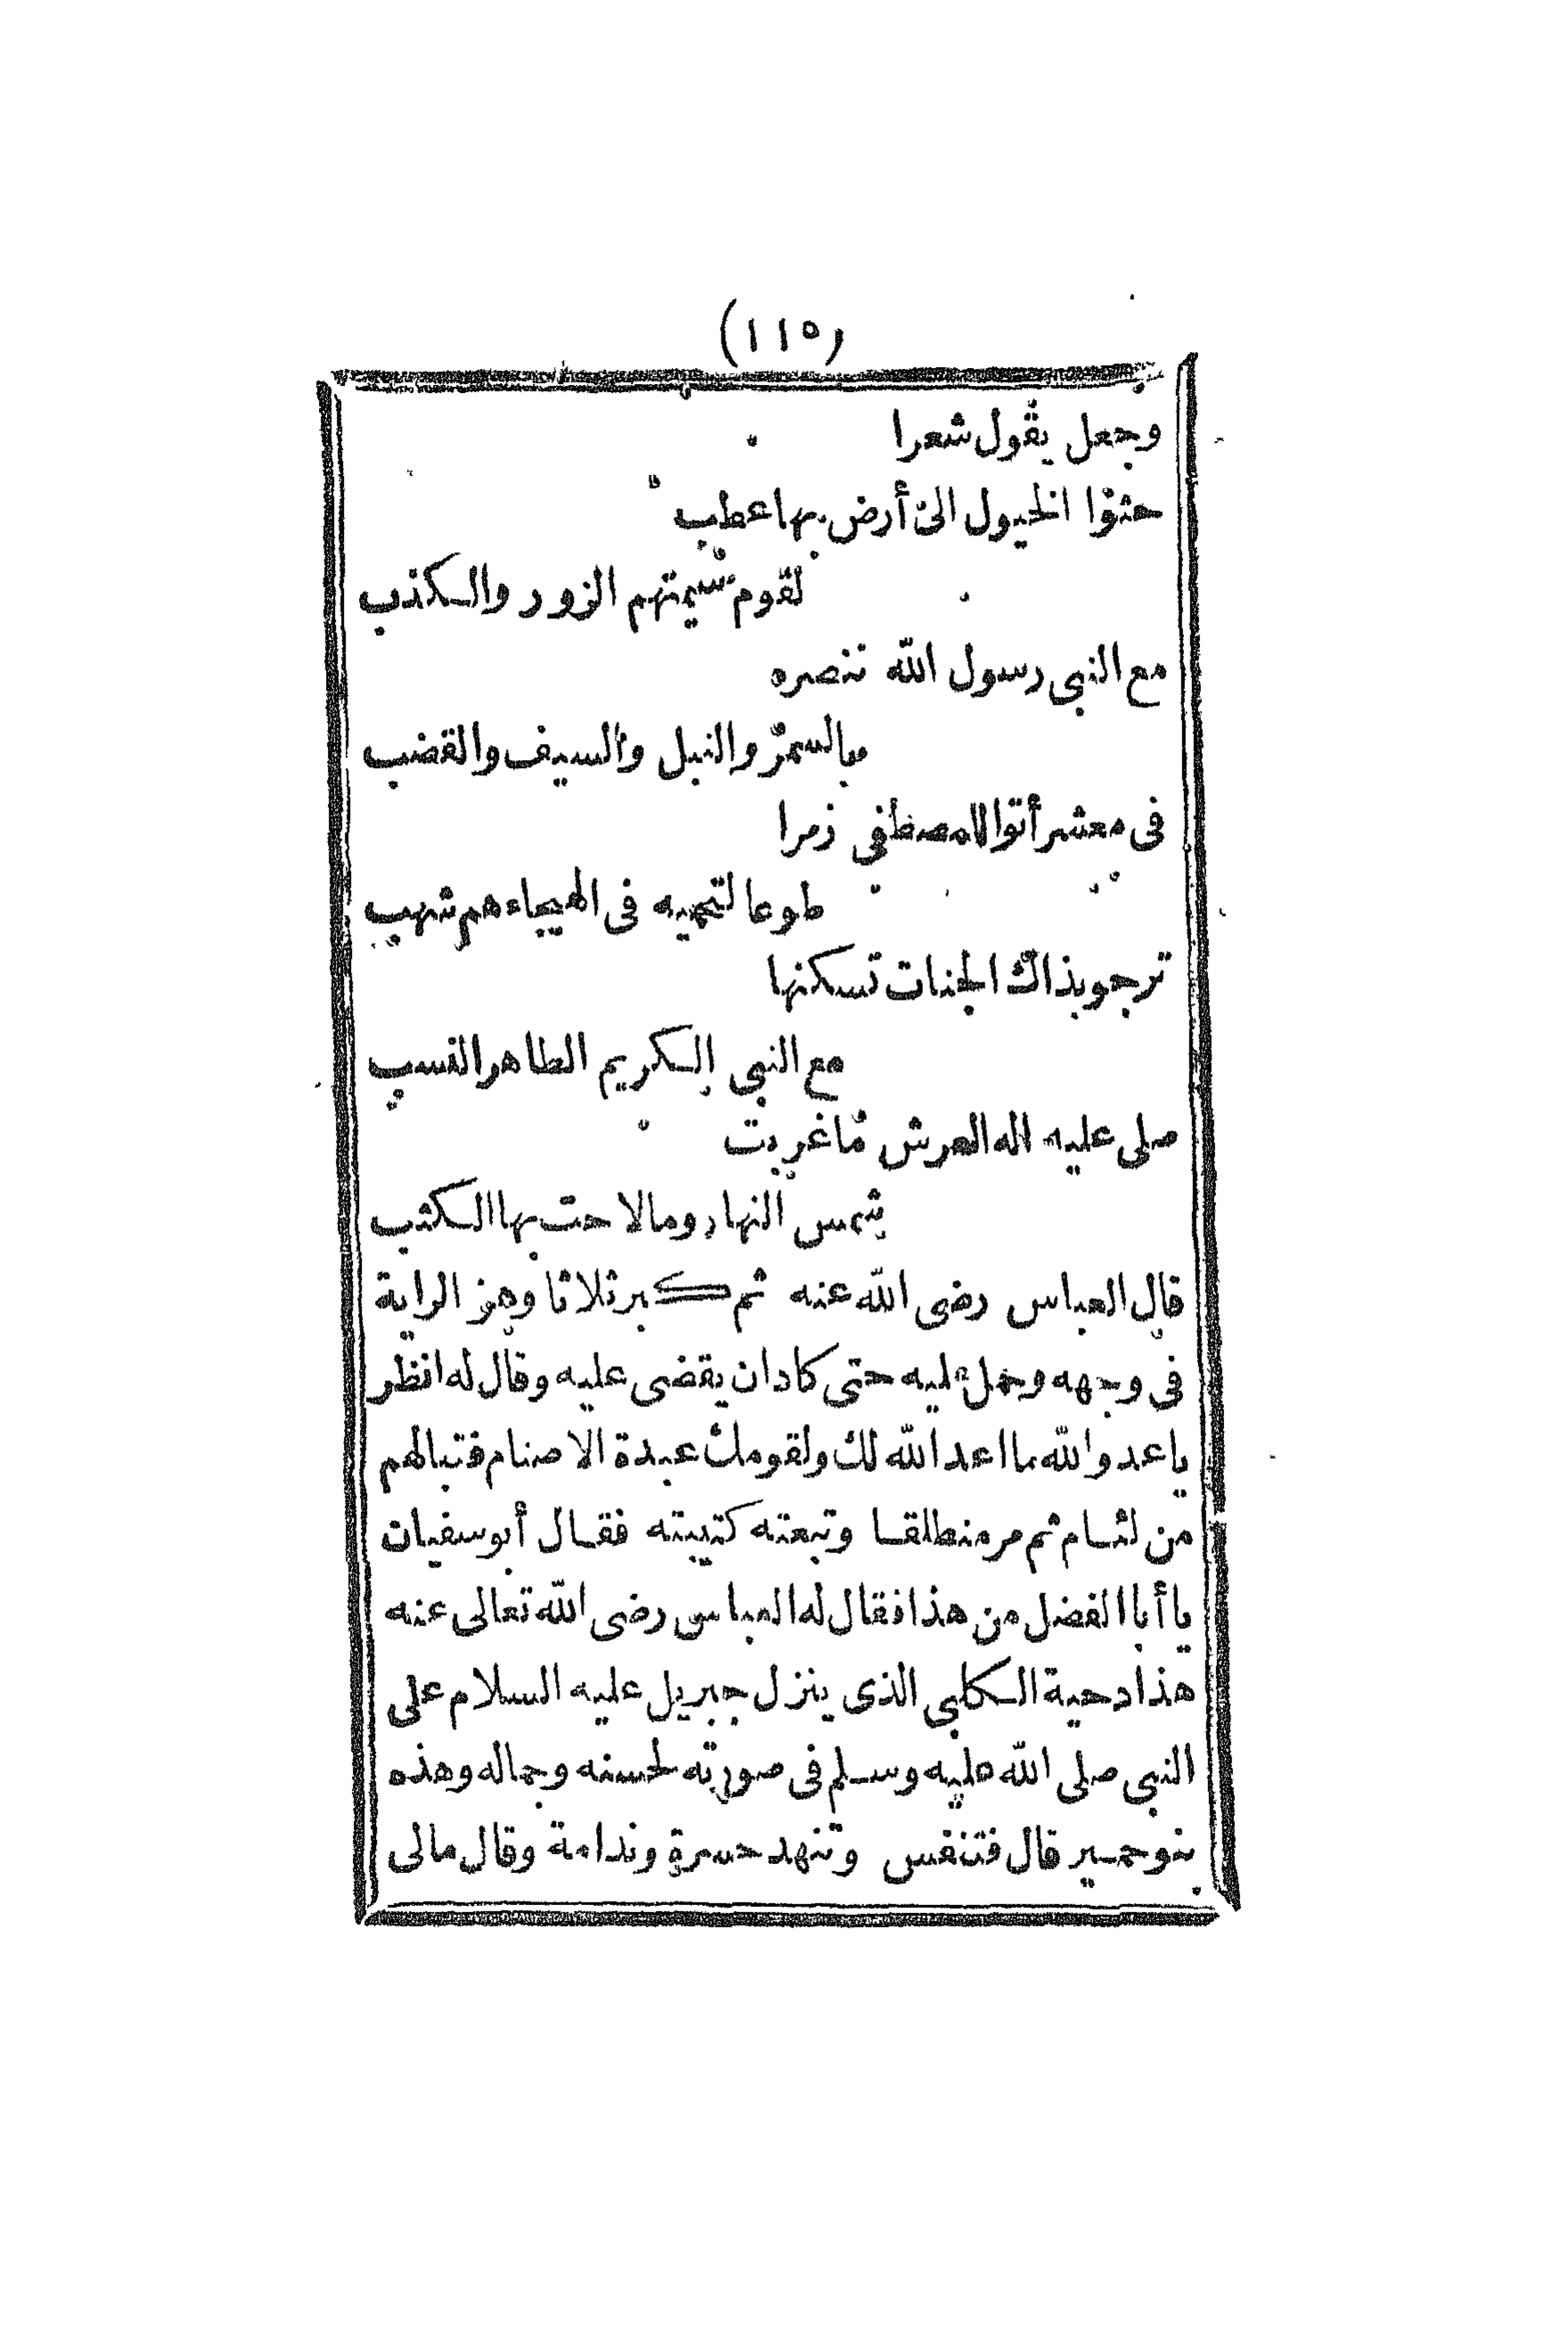 (١١٥)
وجعل يقول شعرا
حثوا الخيول الى أرض بها عطب
لقوم شيمتهم الزور والكذب
مع النبي رسول الله ننصره
بالسمر والنبل والسيف والقضب
فى معشر أتوا للمصطفى زمرا
طوعا لتحميه فى الهيجاء هم شهب
ترجو بذاك الجنات تسكنها
مع النبي الكريم الطاهر النسب
صلى عليه اله العرش ما غربت
شمس النهار وما لاحت بها الكثب
قال العباس رضى الله عنه ثم كبر ثلاثا وهز الراية
فى وجهه وحمل عليه حتى كاد ان يقضى عليه وقال له انظر
يا عدو الله ما اعد الله لك ولقومك عبدة الاصنام فتبا لهم
من لئام ثم مر منطلقا وتبعته كتيبته فقال أبو سفيان
يا أبا الفضل من هذا فقال له العباس رضى الله تعالى عنه
هذا دحية الكلبي الذى ينزل جبريل عليه السلام على
النبي صلى الله عليه وسلم فى صورته لحسنه وجماله وهذه
بنو حمير قال فتنفس وتنهد حسرة وندامة وقال مالى